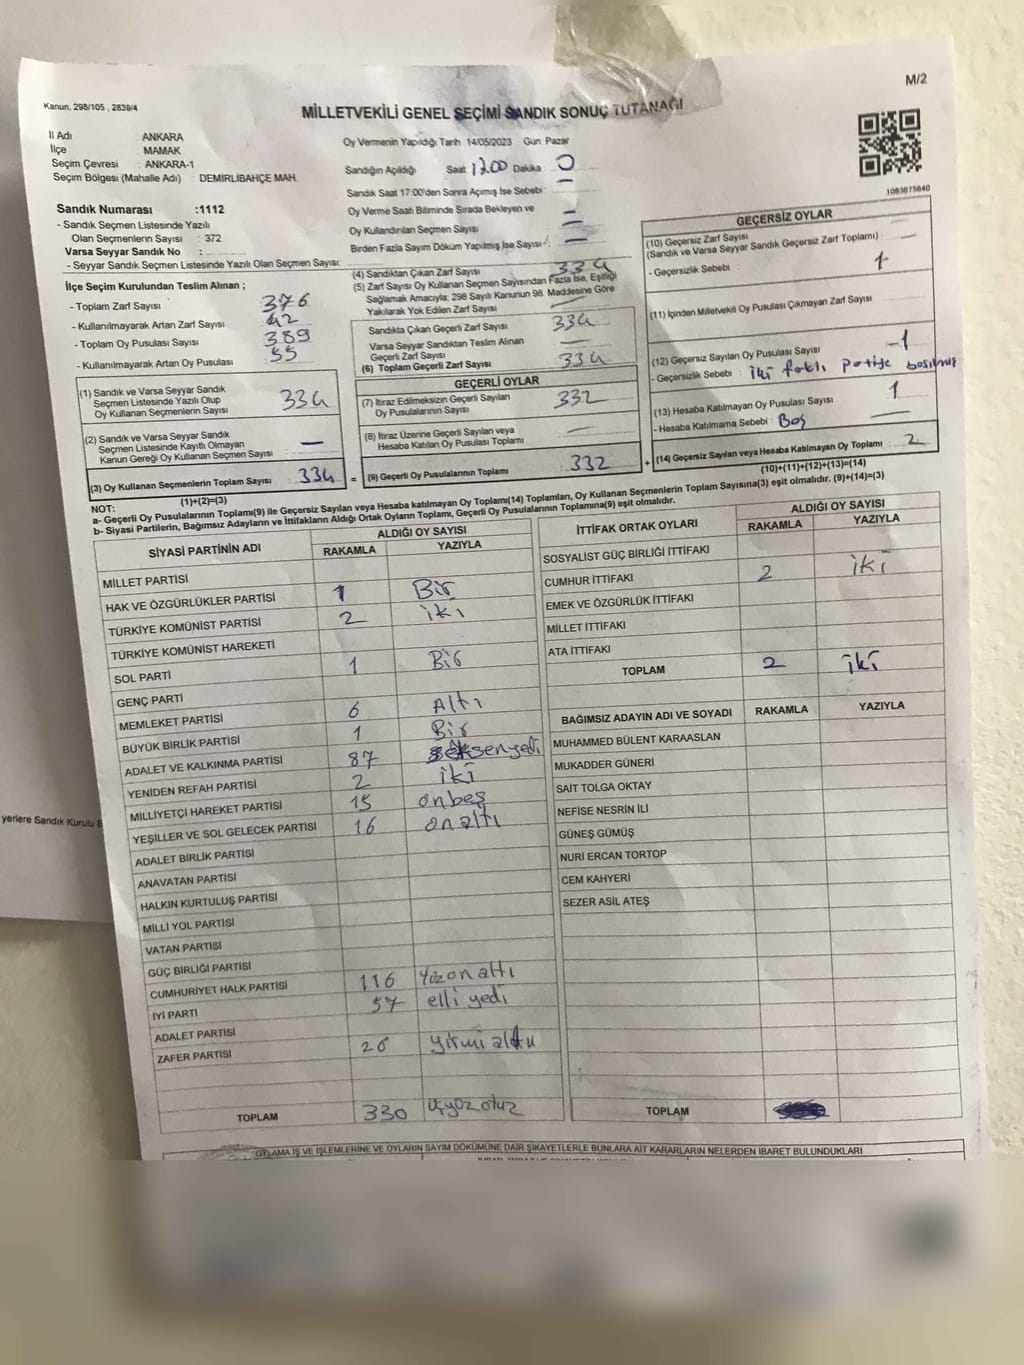 M/2
Kanun, 298/105 , 2839/4
MİLLETVEKİLİ GENEL SEÇİMİ SANDIK SONUÇ TUTANAĞI
İl Adı : ANKARA
İlçe : MAMAK
Seçim Çevresi : ANKARA-1
Seçim Bölgesi (Mahalle Adı) : DEMİRLİBAHÇE MAH.
Oy Vermenin Yapıldığı Tarih :14/05/2023 Gün: Pazar
Sandığın Açıldığı Saat 17.00 Dakika 0
Sandık Saat 17:00'den Sonra Açımış İse Sebebi :
Oy Verme Saati Bitiminde Sırada Bekleyen ve
Oy Kullandırılan Seçmen Sayısı : —
Birden Fazla Sayım Döküm Yapılmış İse Sayısı : —
1083675640
Sandık Numarası :1112
- Sandık Seçmen Listesinde Yazılı
Olan Seçmenlerin Sayısı : 372
Varsa Seyyar Sandık No :
- Seyyar Sandık Seçmen Listesinde Yazılı Olan Seçmen Sayısı:
İlçe Seçim Kurulundan Teslim Alınan ;
- Toplam Zarf Sayısı 376
- Kullanılmayarak Artan Zarf Sayısı : 42
- Toplam Oy Pusulası Sayısı : 389
- Kullanılmayarak Artan Oy Pusulası : 55
(1) Sandık ve Varsa Seyyar Sandık
Seçmen Listesinde Yazılı Olup
Oy Kullanan Seçmenlerin Sayısı : 334
(2) Sandık ve Varsa Seyyar Sandık
Seçmen Listesinde Kayıtlı Olmayan
Kanun Gereği Oy Kullanan Seçmen Sayısı : —
(3) Oy Kullanan Seçmenlerin Toplam Sayısı : 334
(1)+(2)=(3)
(4) Sandıktan Çıkan Zarf Sayısı 334
(5) Zarf Sayısı Oy Kullanan Seçmen Sayısından Fazla İse, Eşitliği
Sağlamak Amacıyla; 298 Sayılı Kanunun 98. Maddesine Göre
Yakılarak Yok Edilen Zarf Sayısı : —
Sandıkta Çıkan Geçerli Zarf Sayısı 334
Varsa Seyyar Sandıktan Teslim Alınan
Geçerli Zarf Sayısı : —
(6) Toplam Geçerli Zarf Sayısı : 334
GEÇERLİ OYLAR
(7) İtiraz Edilmeksizin Geçerli Sayılan
Oy Pusulalarının Sayısı : 332
(8) İtiraz Üzerine Geçerli Sayılan veya
Hesaba Katılan Oy Pusulası Toplamı : —
= (9) Geçerli Oy Pusulalarının Toplamı : 332 +
GEÇERSİZ OYLAR
(10) Geçersiz Zarf Sayısı
(Sandık ve Varsa Seyyar Sandık Geçersiz Zarf Toplamı) : —
- Geçersizlik Sebebi : 1
(11) İçinden Milletvekili Oy Pusulası Çıkmayan Zarf Sayısı
(12) Geçersiz Sayılan Oy Pusulası Sayısı 1
- Geçersizlik Sebebi : İki farklı partiye basılmış
(13) Hesaba Katılmayan Oy Pusulası Sayısı 1
- Hesaba Katılmama Sebebi : Boş
(14) Geçersiz Sayılan veya Hesaba Katılmayan Oy Toplamı : 2
(10)+(11)+(12)+(13)=(14)
NOT:
a- Geçerli Oy Pusulalarının Toplamı(9) ile Geçersiz Sayılan veya Hesaba katılmayan Oy Toplamı(14) Toplamları, Oy Kullanan Seçmenlerin Toplam Sayısına(3) eşit olmalıdır. (9)+(14)=(3)
b- Siyasi Partilerin, Bağımsız Adayların ve İttifakların Aldığı Ortak Oyların Toplamı, Geçerli Oy Pusulalarının Toplamına(9) eşit olmalıdır.
SİYASİ PARTİNİN ADI ALDIĞI OY SAYISI
RAKAMLA YAZIYLA
MİLLET PARTİSİ
HAK VE ÖZGÜRLÜKLER PARTİSİ 1 Bir
TÜRKİYE KOMÜNİST PARTİSİ 2 iki
TÜRKİYE KOMÜNİST HAREKETİ
SOL PARTİ 1 Bir
GENÇ PARTİ
MEMLEKET PARTİSİ 6 Altı
BÜYÜK BİRLİK PARTİSİ 1 Bir
ADALET VE KALKINMA PARTİSİ 87 seksenyedi
YENİDEN REFAH PARTİSİ 2 iki
MİLLİYETÇİ HAREKET PARTİSİ 15 onbeş
YEŞİLLER VE SOL GELECEK PARTİSİ 16 onaltı
ADALET BİRLİK PARTİSİ
ANAVATAN PARTİSİ
HALKIN KURTULUŞ PARTİSİ
MİLLİ YOL PARTİSİ
VATAN PARTİSİ
GÜÇ BİRLİĞİ PARTİSİ
CUMHURİYET HALK PARTİSİ 116 Yüzonaltı
İYİ PARTİ 57 elli yedi
ADALET PARTİSİ
ZAFER PARTİSİ 26 yirmi altı
TOPLAM 330 üçyüzotuz
İTTİFAK ORTAK OYLARI ALDIĞI OY SAYISI
RAKAMLA YAZIYLA
SOSYALİST GÜÇ BİRLİĞİ İTTİFAKI
CUMHUR İTTİFAKI 2 iki
EMEK VE ÖZGÜRLÜK İTTİFAKI
MİLLET İTTİFAKI
ATA İTTİFAKI
TOPLAM 2 iki
BAĞIMSIZ ADAYIN ADI VE SOYADI RAKAMLA YAZIYLA
MUHAMMED BÜLENT KARAASLAN
MUKADDER GÜNERİ
SAİT TOLGA OKTAY
NEFİSE NESRİN İLİ
GÜNEŞ GÜMÜŞ
NURİ ERCAN TORTOP
CEM KAHYERİ
SEZER ASİL ATEŞ
TOPLAM
yerlere Sandık Kurulu B
OYLAMA İŞ VE İŞLEMLERİNE VE OYLARIN SAYIM DÖKÜMÜNE DAİR ŞİKAYETLERLE BUNLARA AİT KARARLARIN NELERDEN İBARET BULUNDUKLARI